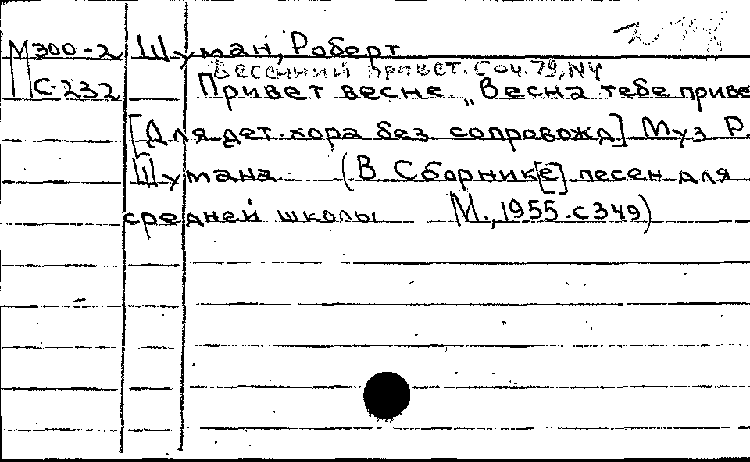 М300-2 Шуман, Роберт
Весенний привет. Соч. 79, N4
С-232 Привет весне „Весна тебе приве
[Для дет. хора без сопровожд] Муз Р.
Шумана (В Сборник[е] песен для
средней школы М., 1955. с 349)